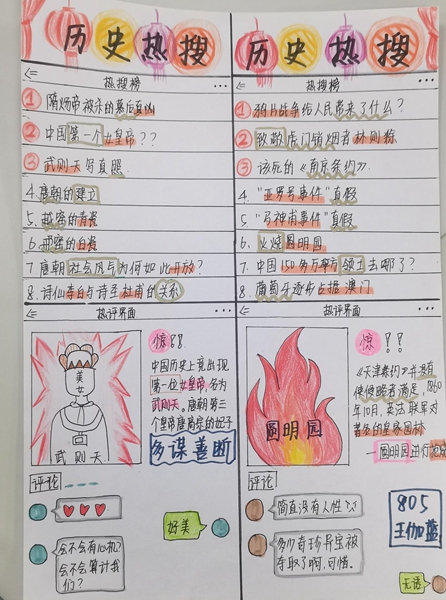 历史热搜
热搜榜
① 隋炀帝被杀的幕后真凶
② 中国第一个女皇帝??
③ 武则天写真照
4. 唐朝的建立
5. 越窑的青瓷
6. 邢窑的白瓷
7. 唐朝社会风气为何如此开放?
8. 诗仙李白与诗圣杜甫的关系
热评界面
美女
武则天
惊!!
中国历史上竟出现
第一位女皇帝,名为
武则天。唐朝第三
个皇帝唐高宗的妃子
多谋善断
评论
好美
会不会有心机?
会不会算计我
们?
历史热搜
热搜榜
① 鸦片战争给人民带来了什么?
② 致敬虎门销烟者林则徐
③ 该死的《南京条约》
4. “亚罗号事件”真假
5. “马神甫事件”真假
6. 火烧圆明园
7. 中国150多万平方领土去哪了?
8. 葡萄牙逐步占据澳门
热评界面
圆明园
惊!!
《天津条约》并没有
使侵略者满足,1860
年10月,英法联军对
著名的皇家园林
—圆明园进行抢掠
评论
简直没有人性
多少奇珍异宝被
夺取了啊,可惜.
805
王伽蓝
无语